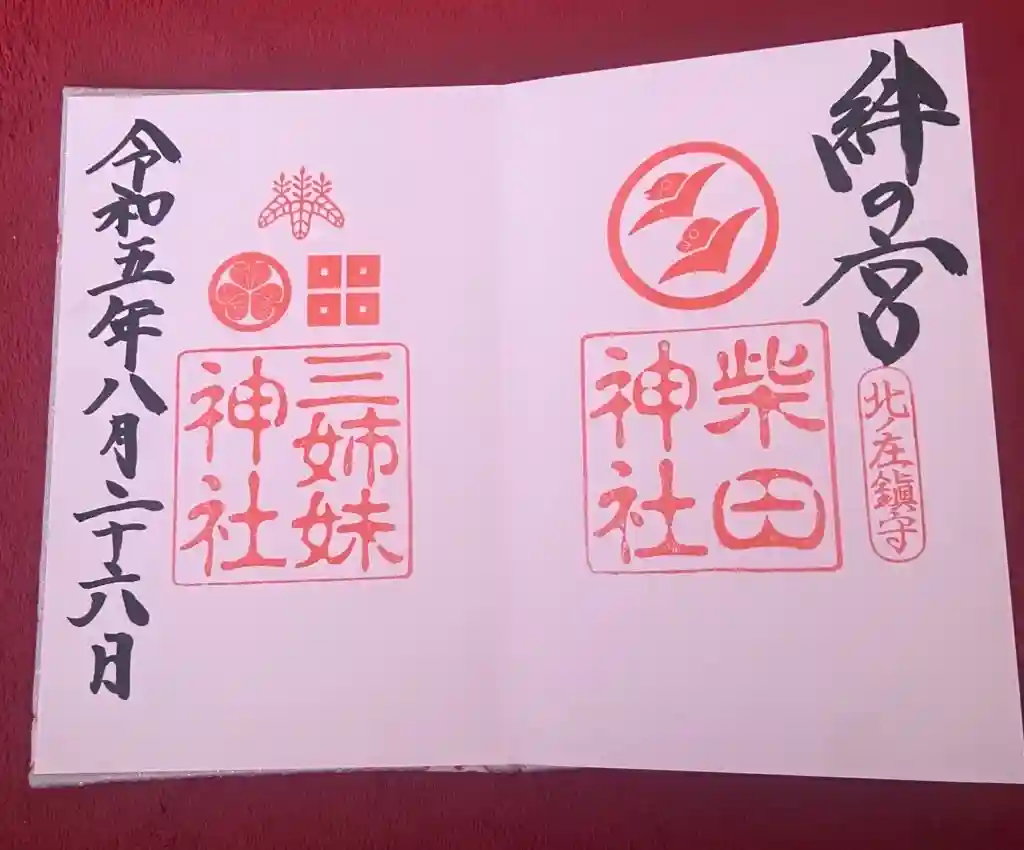 絆の宮
北ノ庄鎮守
柴田
神社
三姉妹
神社
令和五年八月二十六日